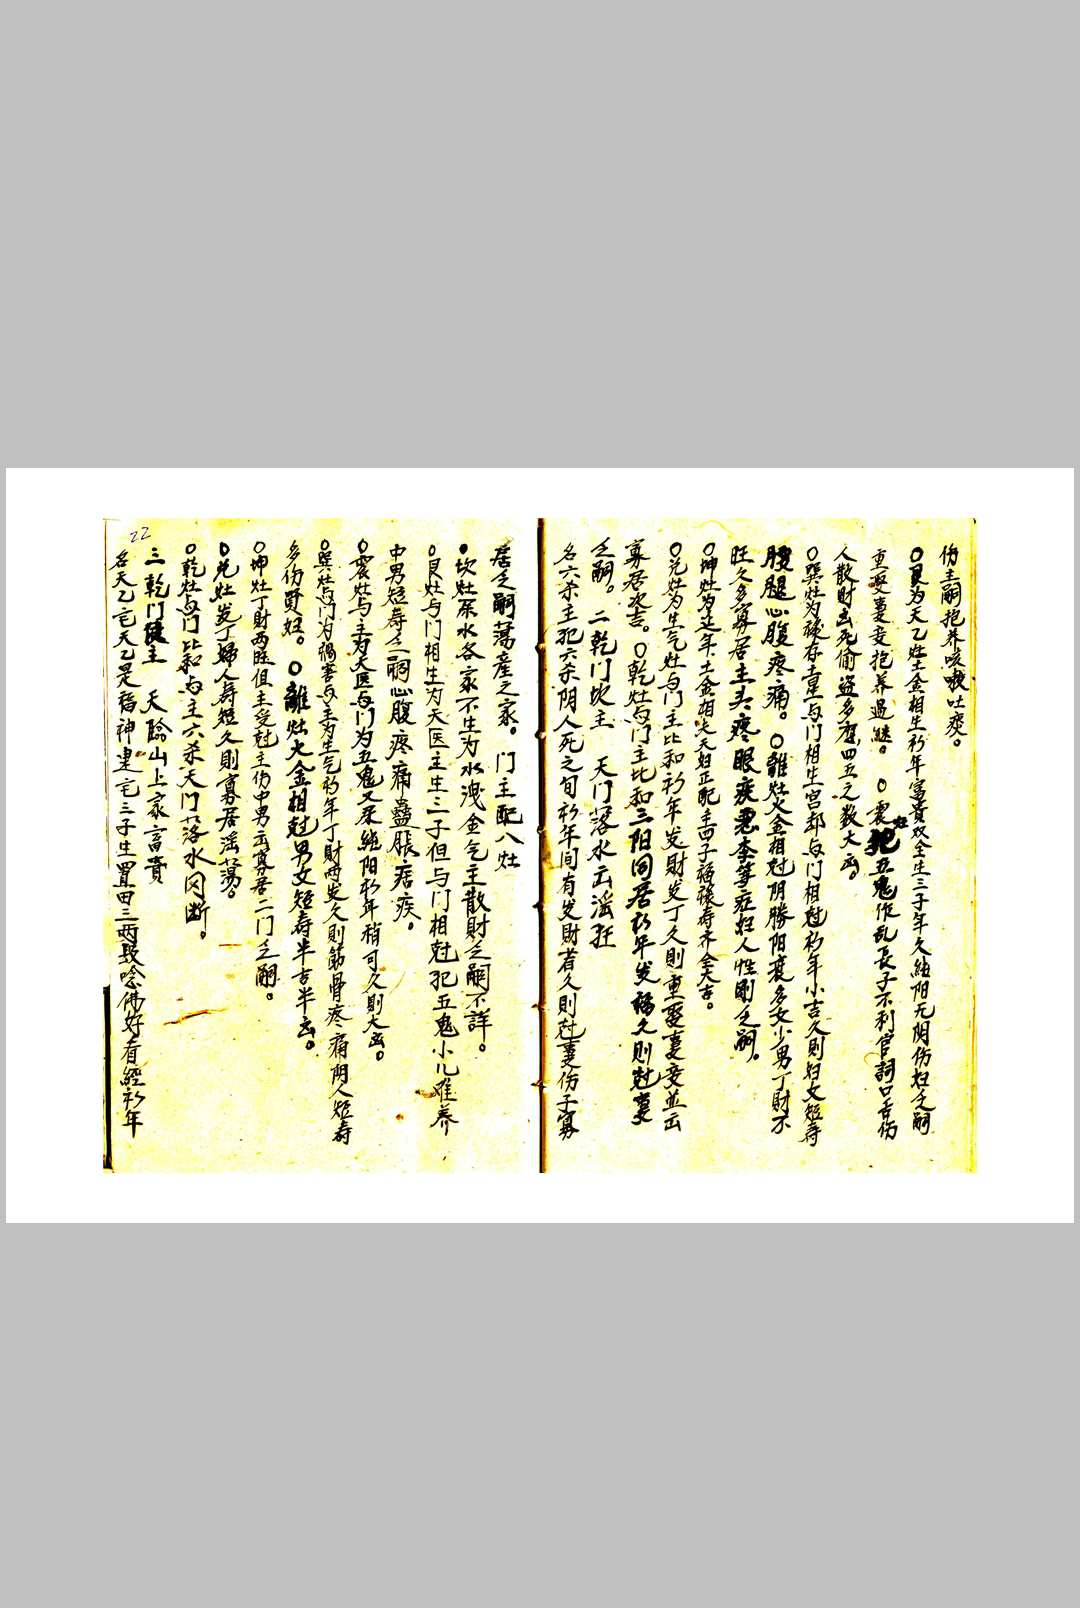 伤主嗣抱养咳嗽吐痰。
〇艮为天乙灶土金相生初年富貴双全生三子年久純阳无阴伤妇乏嗣
重娶妻妾抱养過継。〇震灶犯五鬼作乱長子不利官詞口舌伤
人散財凶死偷盗多應四五之数大凶。
〇巽灶为禄存土星与门相生宫却与门相尅初年小吉久則妇女短寿
腰腿心腹疼痛。〇離灶火金相尅阴勝阳衰多女少男丁財不
旺久多寡居主头疼眼疾悪等症妇人性剛乏嗣。
〇坤灶为延年土金相夫妇正配主四子福禄寿全大吉。
〇兑灶为生气灶与门主比和初年发財发丁久則重娶妻妾並出
寡居次吉。〇乾灶与门主比和三阳同居初年发福久則尅妻
乏嗣。 二乾门坎主 天门落水出淫狂
名六杀主犯六杀阴人死之旬初年间有发財者久則尅妻伤子寡
居乏嗣蕩産之家。门主配八灶
坎灶落水各家不生为水洩金气主散財乏嗣不詳。
〇艮灶与门相生为天医主生三子但与门相尅犯五鬼小儿难养
中男短寿乏嗣心腹疼痛蠱脹痞疾。
〇震灶与主为天医与门为五鬼又系純阳初年稍可久則大凶。
〇巽灶与门为禍害与主为生气初年丁財两发久則筋骨疼痛阴人短寿
多伤野妇。〇離灶火金相尅男女短寿半吉半凶。
〇坤灶丁財两旺但主受尅主伤中男出寡居二门乏嗣。
〇兑灶发丁婦人寿短久則寡居淫蕩。
〇乾灶与门比和与主六杀天门落水同断。
22
三乾门艮主 天臨山上家富貴
名天乙宅天乙是福神建宅三子生置田三两段唸佛好看經初年